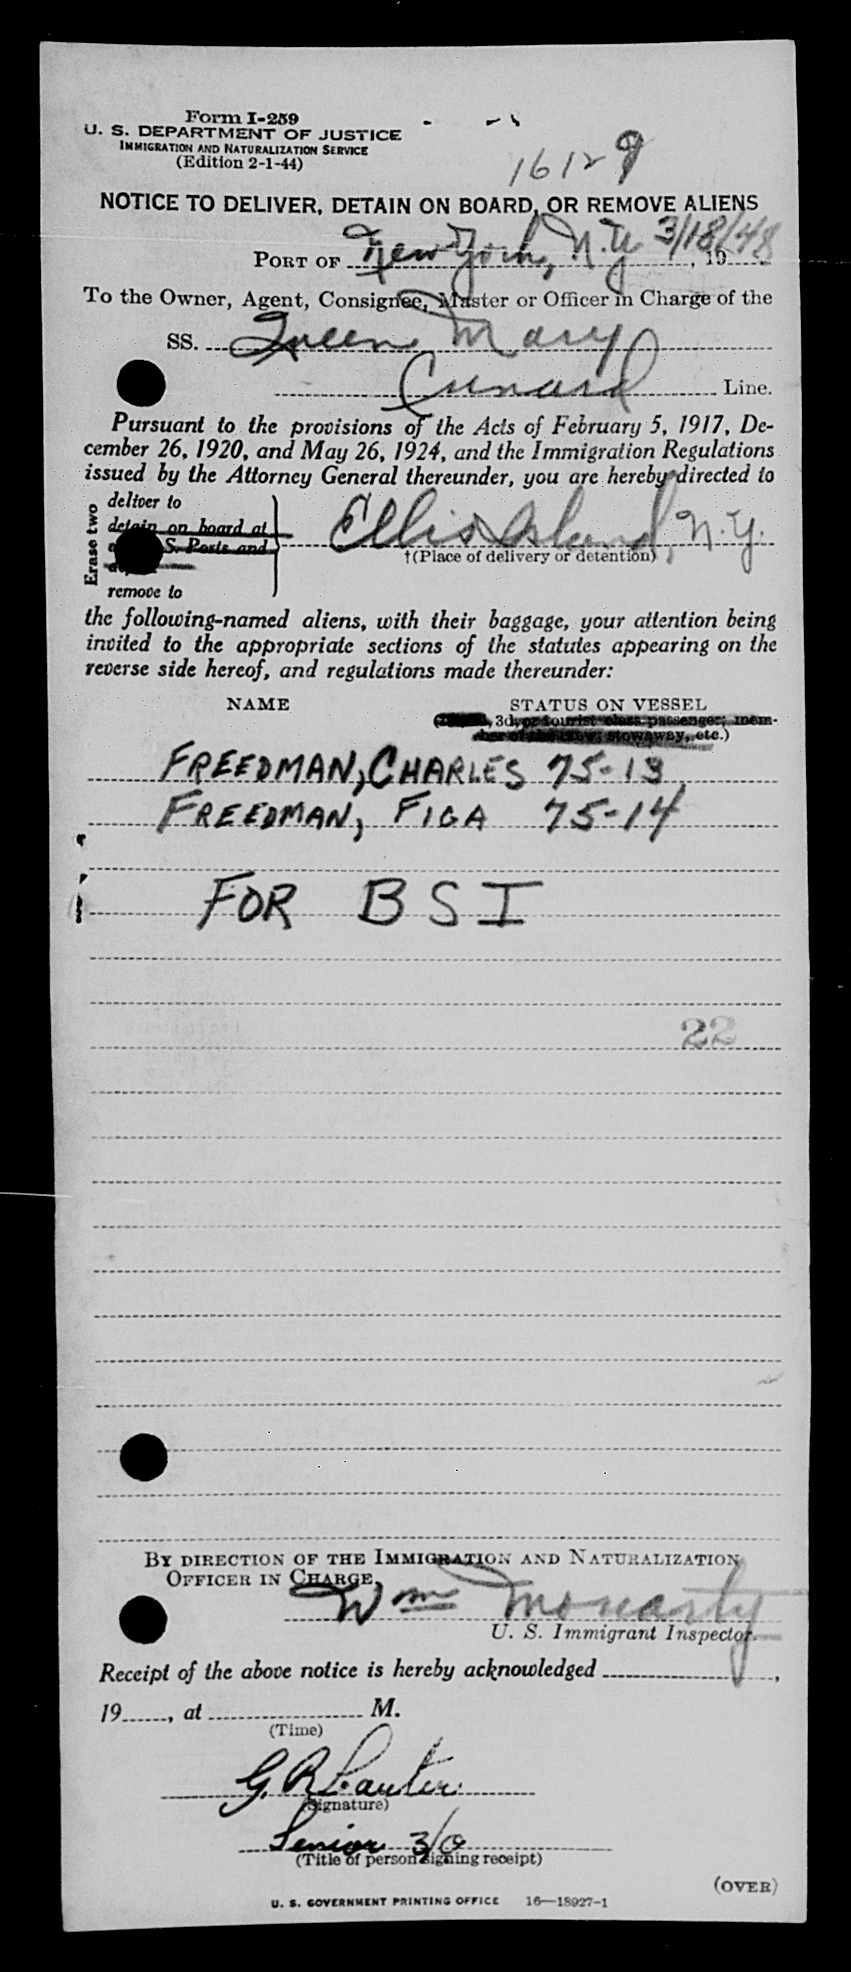 Form I-259
U. S. DEPARTMENT OF JUSTICE
IMMIGRATION AND NATURALIZATION SERVICE
(Edition 2-1-44)
16129
NOTICE TO DELIVER, DETAIN ON BOARD, OR REMOVE ALIENS
PORT OF New York, N.Y. 3/18/48, 19
To the Owner, Agent, Consignee, Master or Officer in Charge of the
SS. Queen Mary
Cunard Line.
Pursuant to the provisions of the Acts of February 5, 1917, De-
cember 26, 1920, and May 26, 1924, and the Immigration Regulations
issued by the Attorney General thereunder, you are hereby directed to
Erase two
deliver to
detain on board at
S. Ports and
remove to
Ellis Island, N.Y.
†(Place of delivery or detention)
the following-named aliens, with their baggage, your attention being
invited to the appropriate sections of the statutes appearing on the
reverse side hereof, and regulations made thereunder:
NAME STATUS ON VESSEL
, 3d, or tourist class passenger; mem-
ber of the crew; stowaway, etc.)
FREEDMAN, CHARLES 75-13
FREEDMAN, FIGA 75-14
FOR BSI
22
BY DIRECTION OF THE IMMIGRATION AND NATURALIZATION
OFFICER IN CHARGE,
Wm
U. S. Immigrant Inspector.
Receipt of the above notice is hereby acknowledged ,
19 , at M.
(Time)
G. R.
(Signature)
Senior 3/O
(Title of person signing receipt)
(OVER)
U. S. GOVERNMENT PRINTING OFFICE 16—18927-1